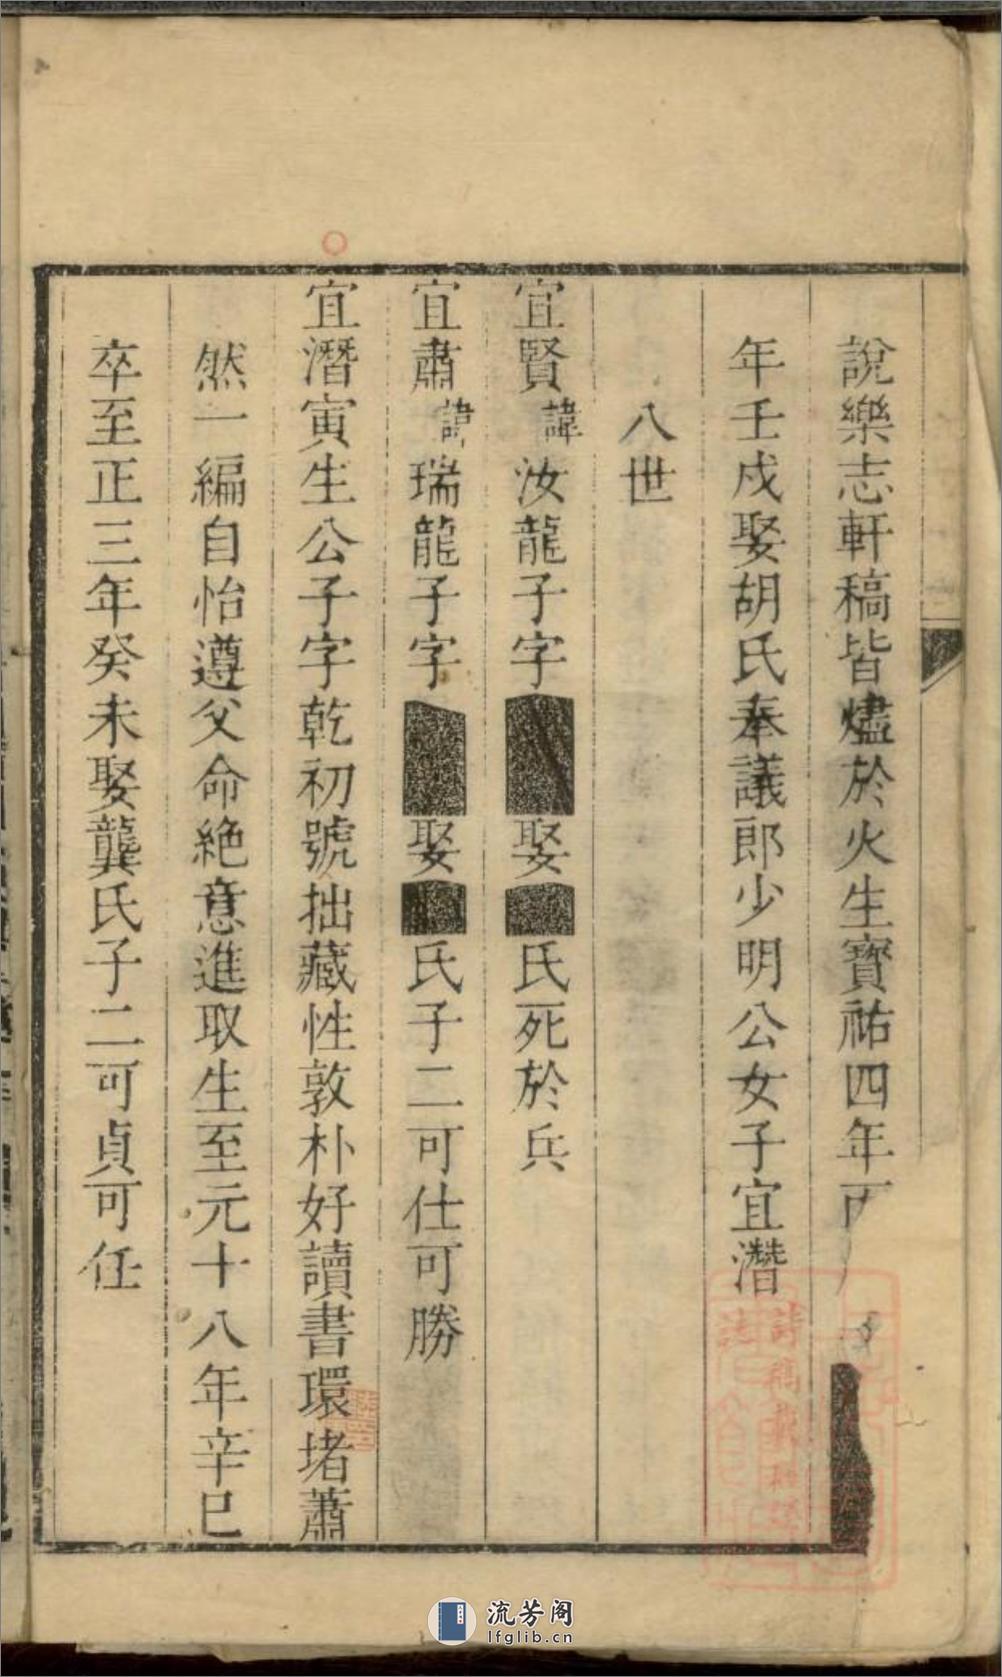 說樂志軒稿皆燼於火生寶祐四年丙
年壬戍娶胡氏奉議郎少明公女子宜潛
八世
宜賢諱汝龍子字娶氏死於兵
宜肅諱瑞龍子字娶氏子二可仕可勝
宜潛寅生公子字乾初號拙藏性敦朴好讀書環堵蕭
然一編自怡遵父命絕意進取生至元十八年辛巳
卒至正三年癸未娶龔氏子二可貞可任
流芳阁
lfglib.cn